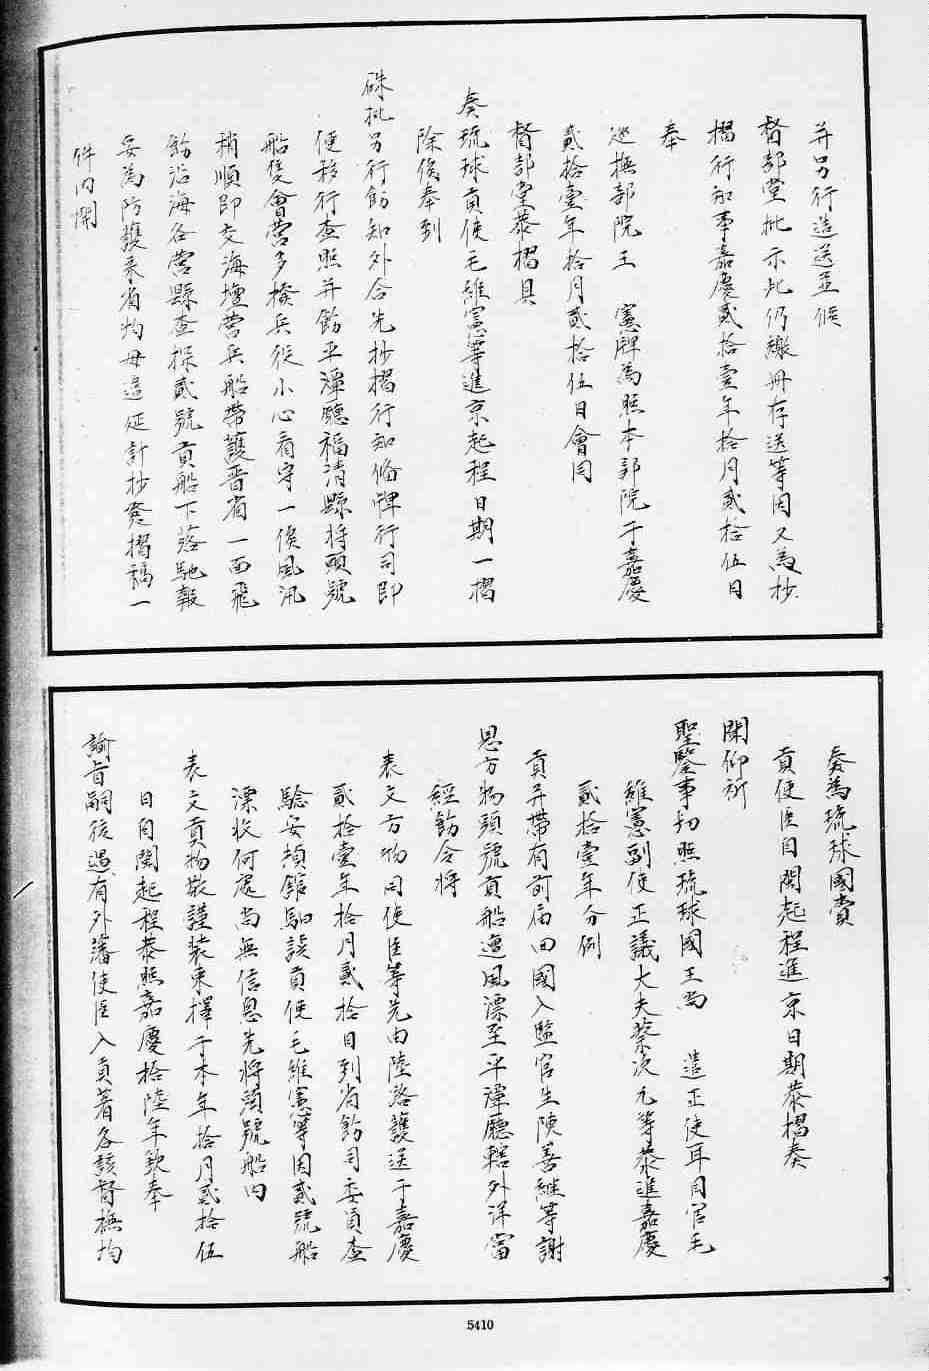 并另行造送並候
督部堂批示此仍繳冊存送等因又為抄
摺行知事嘉慶貳拾壹年拾月貳拾伍日
奉
巡撫部院王　憲牌為照本部院于嘉慶
貳拾壹年拾月貳拾伍日會同
督部堂恭摺具
奏琉球貢使毛維憲等進京起程日期一摺
除俟奉到
硃批另行飭知外合先抄摺行知備牌行司即
便移行查照并飭平潭廳福清縣將頭號
船隻會營多撥兵役小心看守一俟風汛
稍順即交海壇營兵船帶護晋省一面飛
飭沿海各營縣查探貳號貢船下落馳報
妥為防護來省均毋遲延計抄發摺稿一
件內開
奏為琉球國賫
貢使臣自閩起程進京日期恭摺奏
聞仰祈
聖鑒事切照琉球國王尚　遣正使耳目官毛
維憲副使正議大夫蔡次九等恭進嘉慶
貳拾壹年分例
貢并帶有前屆回國入監官生陳善繼等謝
恩方物頭號貢船遭風漂至平潭廳轄外洋當
經飭令將
表文方物同使臣等先由陸路護送于嘉慶
貳拾壹年拾月貳拾日到省飭司委員查
驗安頓館馹該貢使毛維憲等因貳號船
漂收何處尚無信息先將頭號船內
表文貢物敬謹裝束擇于本年拾月貳拾伍
日自閩起程恭照嘉慶拾陸年欽奉
諭旨嗣後遇有外藩使臣入貢著各該督撫均
5410